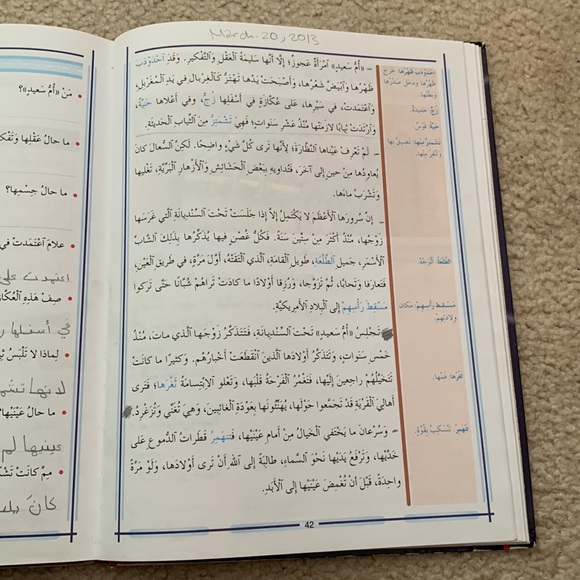 March. 20, 2013
– «أُمُّ سَعيدٍ» ٱمْرَأَةٌ عَجوزٌ؛ إِلّا أَنَّها سَليمَةُ ٱلْعَقْلِ وَٱلتَّفْكيرِ. وَقَدِ ٱحْدَوْدَبَ
ظَهْرُها وَٱبْيَضَّ شَعْرُها، وَأَصْبَحَتْ يَدُها تَهْتَزُّ كَٱلْغِرْبالِ في يَدِ ٱلْمُغَرْبِلِ،
وَٱعْتَمَدَتْ، في سَيْرِها، عَلى عُكّازَةٍ في أَسْفَلِها زُجٌّ، وَفي أَعْلاها حَنِيَّةٌ،
وَٱرْتَدَتْ ثِيابًا لازَمَتْها مُنْذُ عَشْرِ سَنَواتٍ؛ فَهِيَ تَشْمَئِزُّ مِنَ ٱلثِّيابِ ٱلْحَديثَةِ.
– لَمْ تَعْرِفْ عَيْناها ٱلنَّظّارَةَ؛ لِأَنَّها تَرى كُلَّ شَيْءٍ واضِحًا. لٰكِنَّ ٱلسُّعالَ كانَ
يُعاوِدُها مِنْ حينٍ إِلى آخَرَ، فَتُداويهِ بِبَعْضِ ٱلْحَشائِشِ وَٱلْأَزْهارِ ٱلْبَرِّيَّةِ، تَغْليها
وَتَشْرَبُ ماءَها.
– إِنَّ سُرورَها ٱلْأَعْظَمَ لا يَكْتَمِلُ إِلّا إِذا جَلَسَتْ تَحْتَ ٱلسِّنْدِيانَةِ ٱلَّتي غَرَسَها
زَوْجُها، مُنْذُ أَكْثَرَ مِنْ سِتّينَ سَنَةً. فَكُلُّ غُصْنٍ فيها يُذَكِّرُها بِذٰلِكَ ٱلشّابِّ
ٱلْأَسْمَرِ، جَميلِ ٱلطَّلْعَةِ، طَويلِ ٱلْقامَةِ، ٱلَّذي ٱلْتَقَتْهُ، أَوَّلَ مَرَّةٍ، في طَريقِ ٱلْعَيْنِ،
فَتَعارَفا وَتَحابّا، ثُمَّ تَزَوَّجا، وَرُزِقا أَوْلادًا ما كادَتْ تَراهُمْ شُبّانًا حَتّى تَرَكوا
مَسْقِطَ رَأْسِهِمْ إِلى ٱلْبِلادِ ٱلْأَمِيرْكِيَّةِ.
تَجْلِسُ «أُمُّ سَعيدٍ» تَحْتَ ٱلسِّنْدِيانَةِ، فَتَتَذَكَّرُ زَوْجَها ٱلَّذي ماتَ، مُنْذُ
خَمْسِ سَنَواتٍ، وَتَتَذَكَّرُ أَوْلادَها ٱلَّذينَ ٱنْقَطَعَتْ أَخْبارُهُم. وَكَثيرًا ما كانَتْ
تَتَخَيَّلُهُمْ راجِعينَ إِلَيْها، فَتَغْمُرُ ٱلْفَرْحَةُ قَلْبَها، وَتَعْلو ٱلِٱبْتِسامَةُ ثَغْرَها؛ فَتَرى
أَهالِيَ ٱلْقَرْيَةِ قَدْ تَجَمَّعوا حَوْلَها، يُهَنِّئونَها بِعَوْدَةِ ٱلْغائِبينَ، وَهِيَ تُغَنّي وَتُزَغْرِدُ.
– وَسُرْعانَ ما يَخْتَفي ٱلْخَيالُ مِنْ أَمامِ عَيْنَيْها، فَتَنْهَمِرُ قَطَراتُ ٱلدُّموعِ عَلى
خَدَّيْها، وَتَرْفَعُ يَدَيْها نَحْوَ ٱلسَّماءِ، طالِبَةً إِلى ٱللهِ أَنْ تَرى أَوْلادَها، وَلَوْ مَرَّةً
واحِدَةً، قَبْلَ أَنْ تُغْمِضَ عَيْنَيْها إِلى ٱلْأَبَدِ.
ٱحْدَوْدَبَ ظَهْرُها: خرج
ظهرها ودخل صدرها
وبطنها.
زُجٌّ: حديدة.
حَنِيَّةٌ: قوس.
تَشْمَئِزُّ منها: تضيق بها
وتنفر منها.
ٱلطَّلْعَة: الوجه.
مَسْقِط رَأْسِهِمْ: مكان
ولادتهم.
ثَغْرَها: فمها.
تَنْهَمِرُ: تنسكب بقوّة.
42
مَنْ «أُمُّ سَعيدٍ»؟
ما حالُ عَقْلِها وَتَفْك
ما حالُ جِسْمِها؟
عَلامَ ٱعْتَمَدَتْ في
اعتمدت على
صِفْ هٰذِهِ ٱلْعُكّا
في أسفلها ز
لِماذا لا تَلْبَسُ ثِ
لانها تشم
ما حالُ عَيْنَيْها
عينيها لم
مِمَّ كانَتْ تَشْ
كان يعا